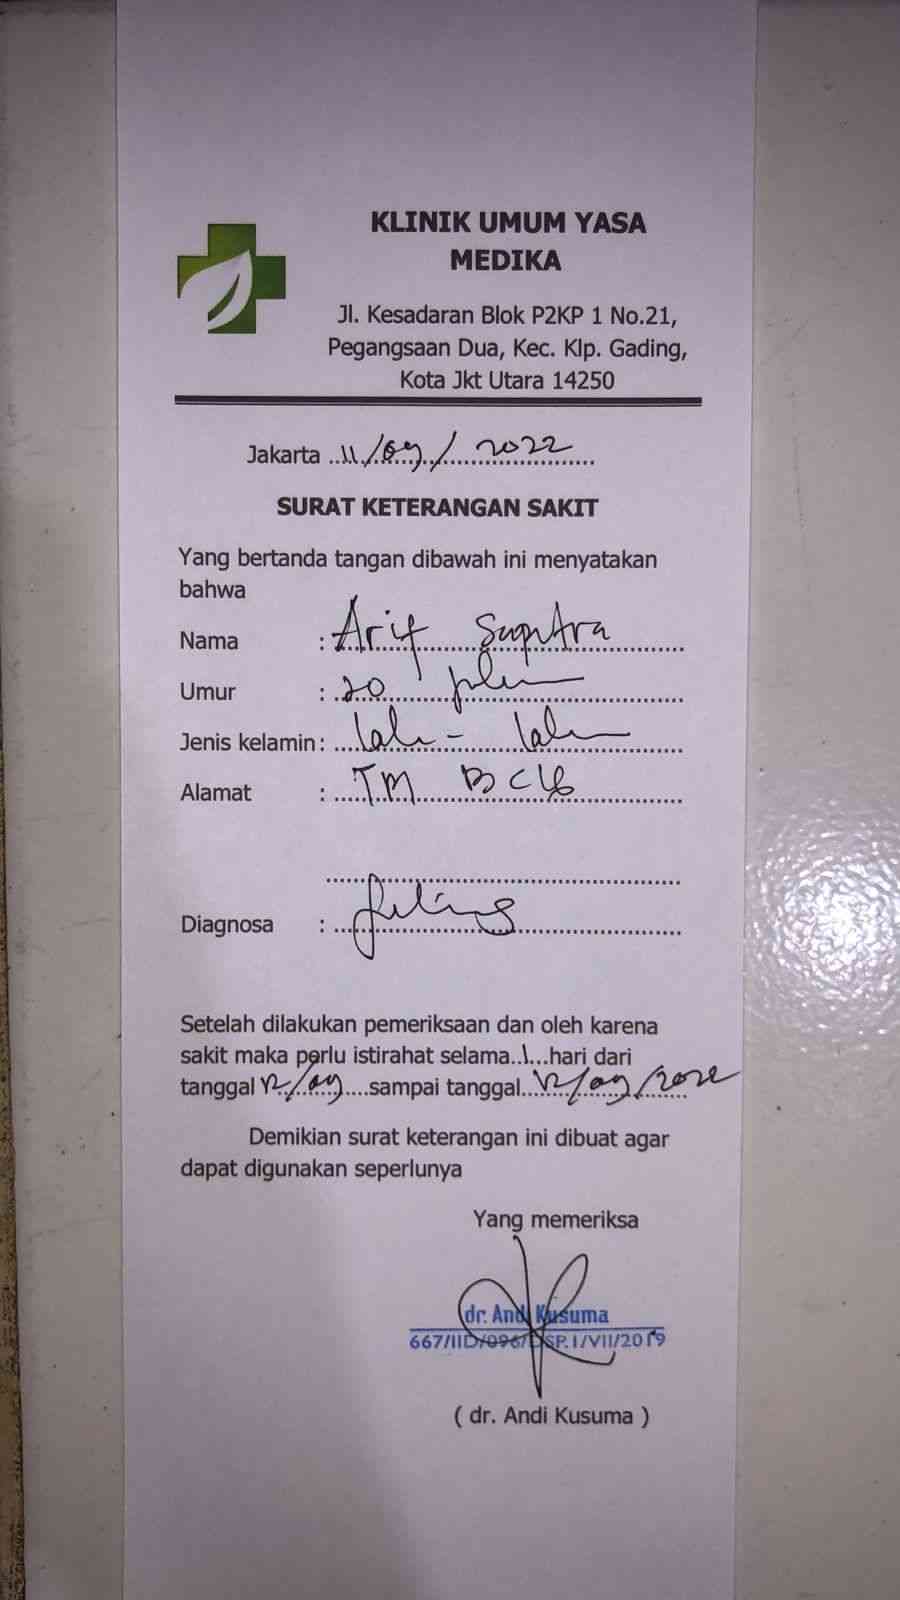 KLINIK UMUM YASA
MEDIKA
Jl. Kesadaran Blok P2KP 1 No.21,
Pegangsaan Dua, Kec. Klp. Gading,
Kota Jkt Utara 14250
Jakarta 11/09/2022
SURAT KETERANGAN SAKIT
Yang bertanda tangan dibawah ini menyatakan
bahwa
Nama : Arif Saputra
Umur : 20
Jenis kelamin: laki - laki
Alamat : TM
Diagnosa :
Setelah dilakukan pemeriksaan dan oleh karena
sakit maka perlu istirahat selama..1...hari dari
tanggal 12/09....sampai tanggal..12/09/2022
Demikian surat keterangan ini dibuat agar
dapat digunakan seperlunya
Yang memeriksa
dr. Andi Kusuma
667/IID/096/DSP.1/VII/2019
( dr. Andi Kusuma )